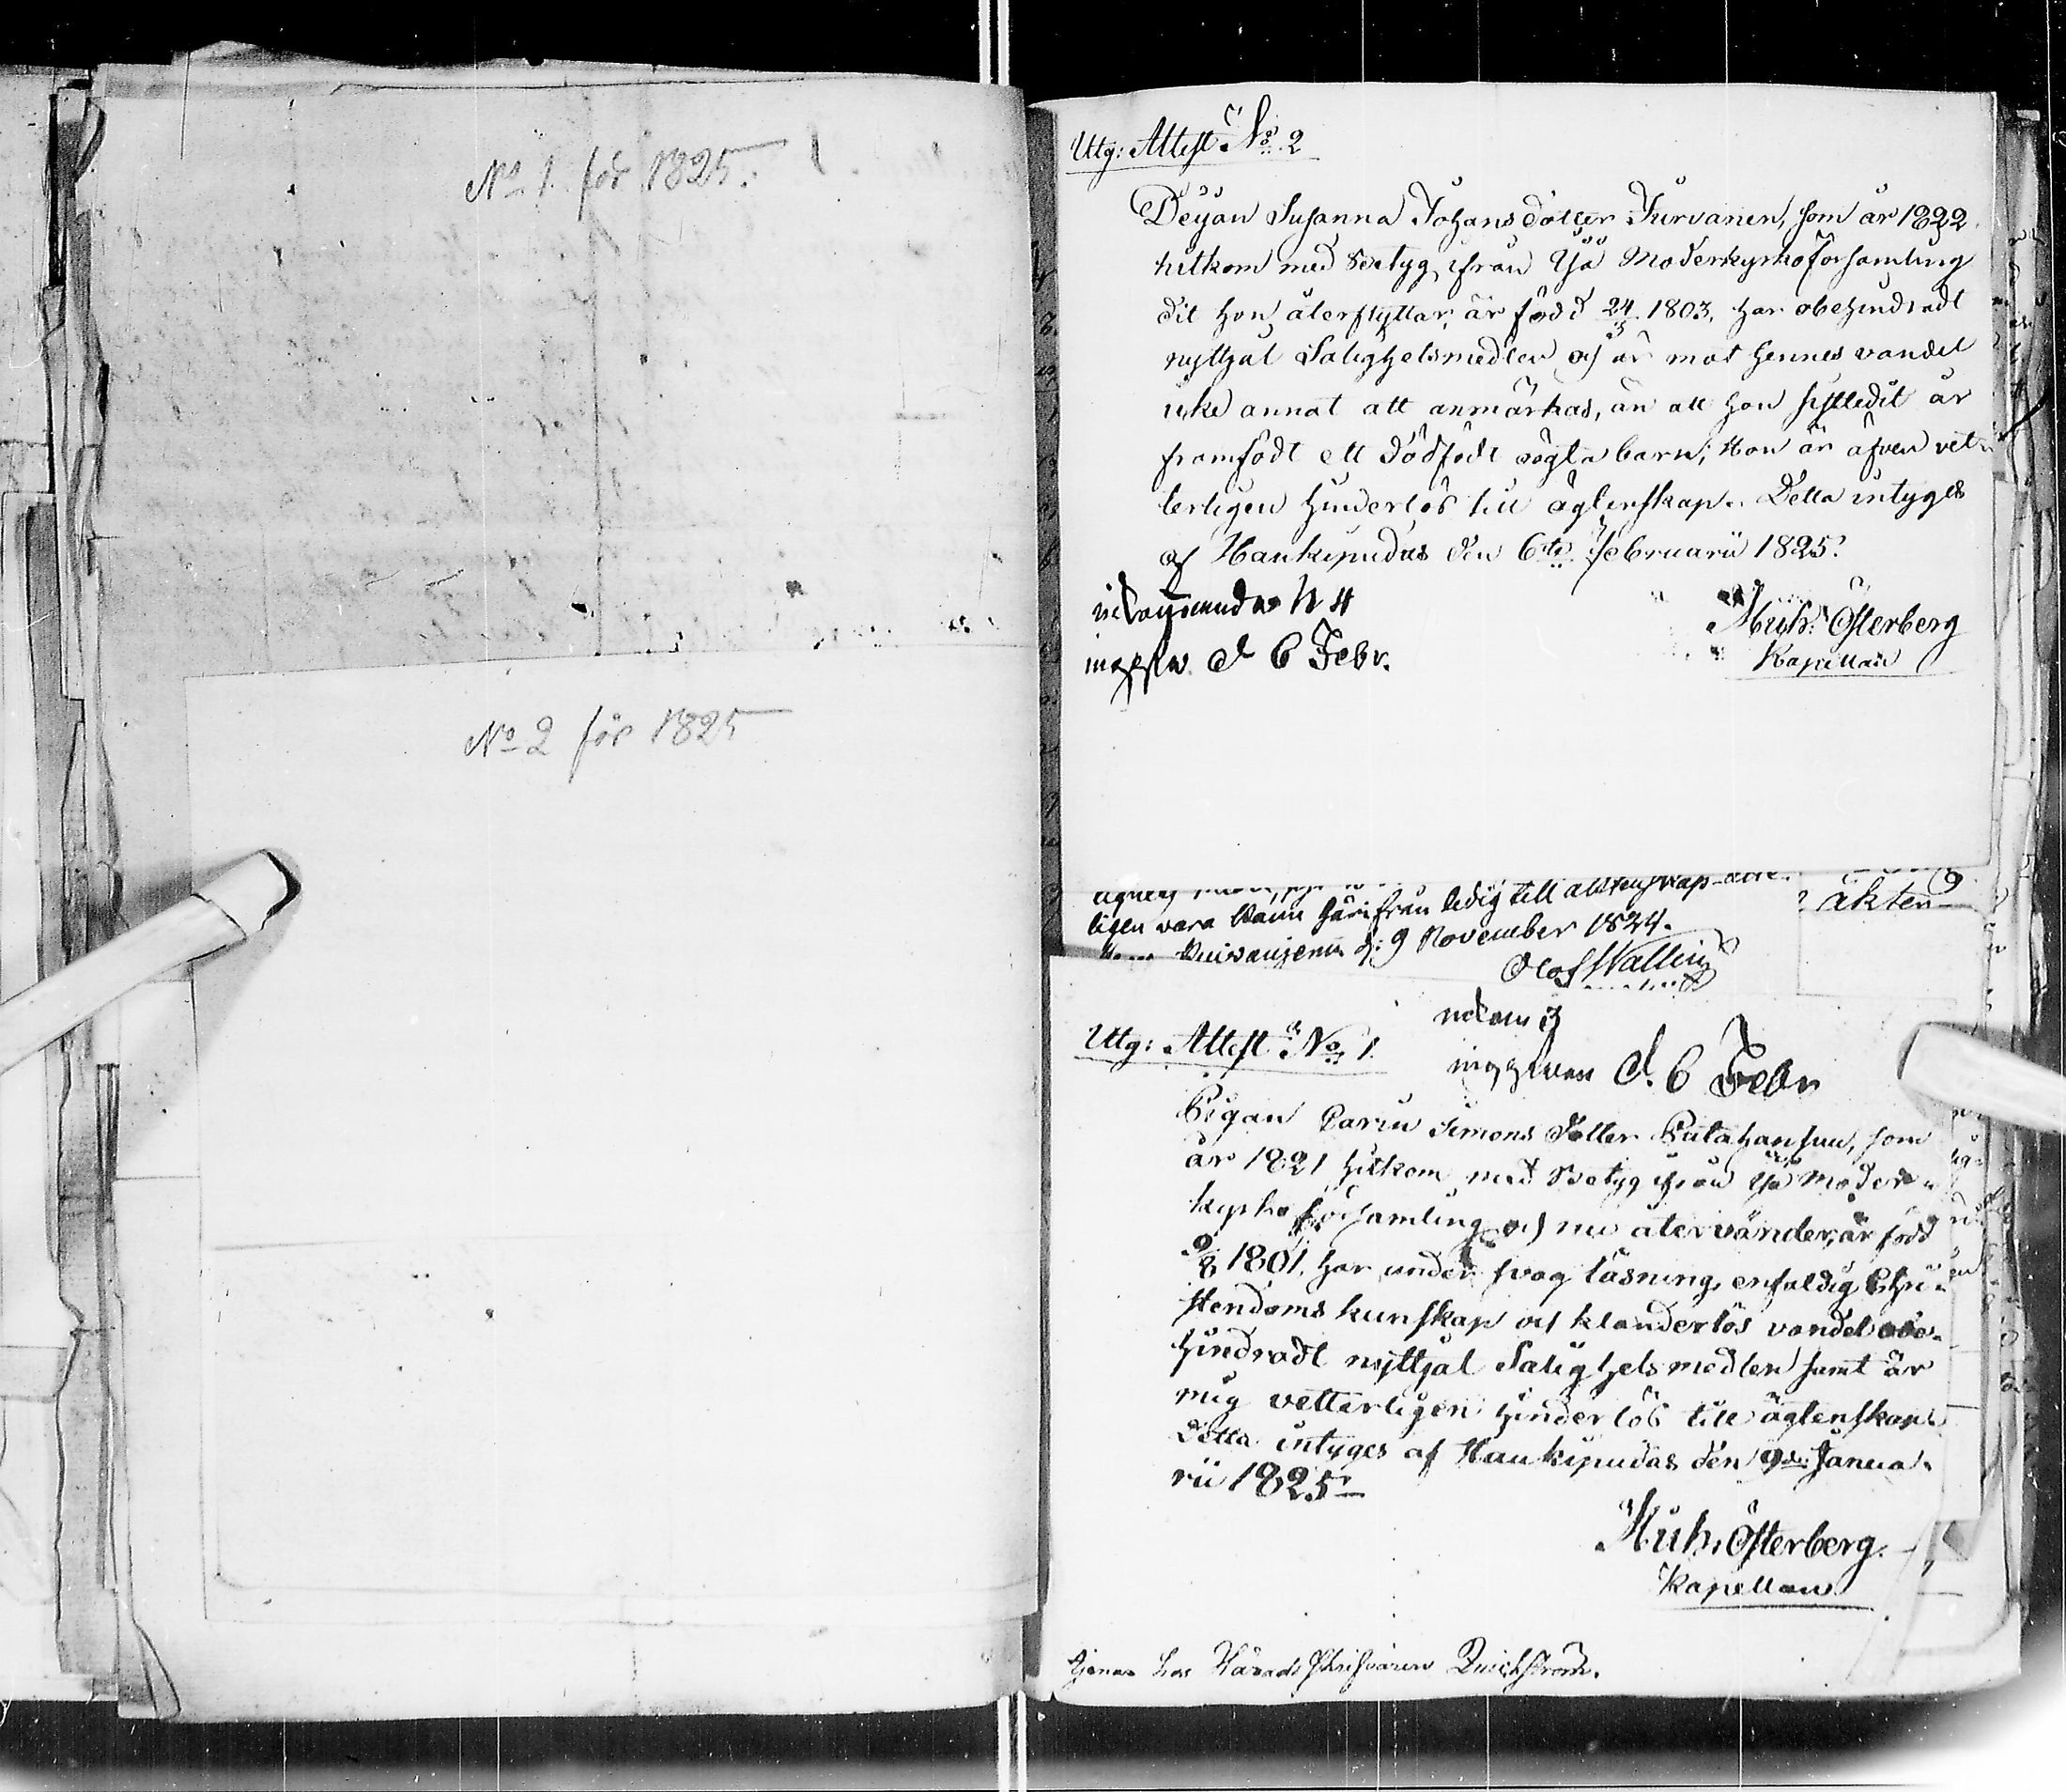 No 1. för 1825.
No 2 för 1825
Utg: Attest No. 2
Deijan Susanna Johansdotter Turvanen, som år 1822
hitkom med Betyg ifrån Ijå Moderkyrkoförsamling
dit hon återflyttar, är född 24/3 1803, har obehindradt
nyttjat Salighetsmedlen och är mot hennes vandel
icke annat att anmärkas, än att hon sistledit år
framfödt ett dödfödt oägta barn; Hon är äfven vet-
terligen hinderlös till ägtenskap. Detta intyges
af Haukipudas den 6te Februarii 1825.
N 4
d 6 Febr.
Mich: Österberg
Kapellan
ligen vara Hann härifrån ledig till
d: 9 November 1824.
Olof Wallin
äkten
Utg: Attest No 1.
d. 6 Febr
Pigan Carin Simons Dotter, som
år 1821 hitkom med Betyg ifrån Ijå Moder-
kyrko församling och nu återvänder, är född
9/8 1801. har under svag läsning, enfaldig Chri-
stendoms kunskap och klanderlös vandel obe-
hindradt nyttjat Salighets medlen samt är
mig vetterligen hinderlös till ägtenskap.
Detta intyges af Haukipudas den 9de Janua-
rii 1825.
Mich: Österberg.
Kapellan
tjenar hos Häradsskrifvaren